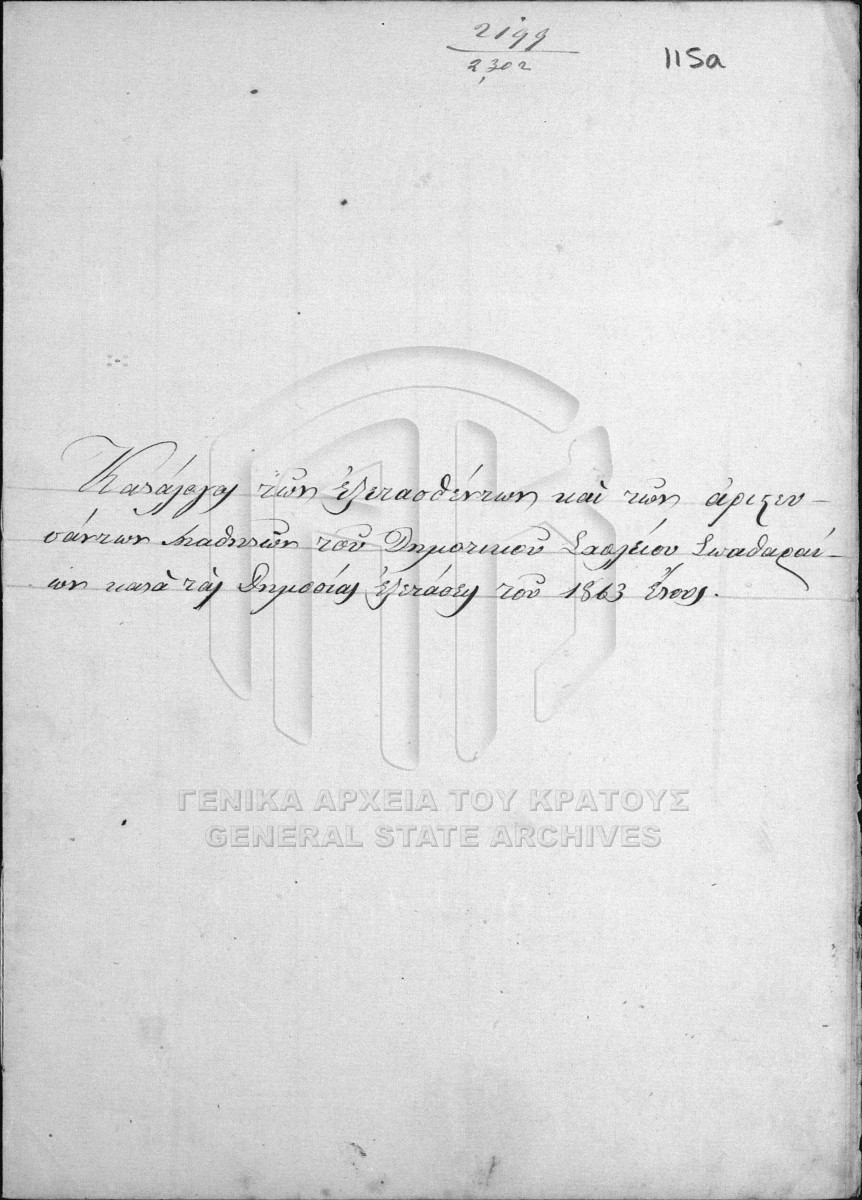 2199
2302
115a
Κατάλογος τῶν ἐξετασθέντων καὶ τῶν ἀριστευ-
σάντων Μαθητῶν τοῦ Δημοτικοῦ Σχολείου Σπαθαραί-
ων κατὰ τὰς Δημοσίας ἐξετάσεις τοῦ 1863 Ἔτους.
ΓΕΝΙΚΑ ΑΡΧΕΙΑ ΤΟΥ ΚΡΑΤΟΥΣ
GENERAL STATE ARCHIVES